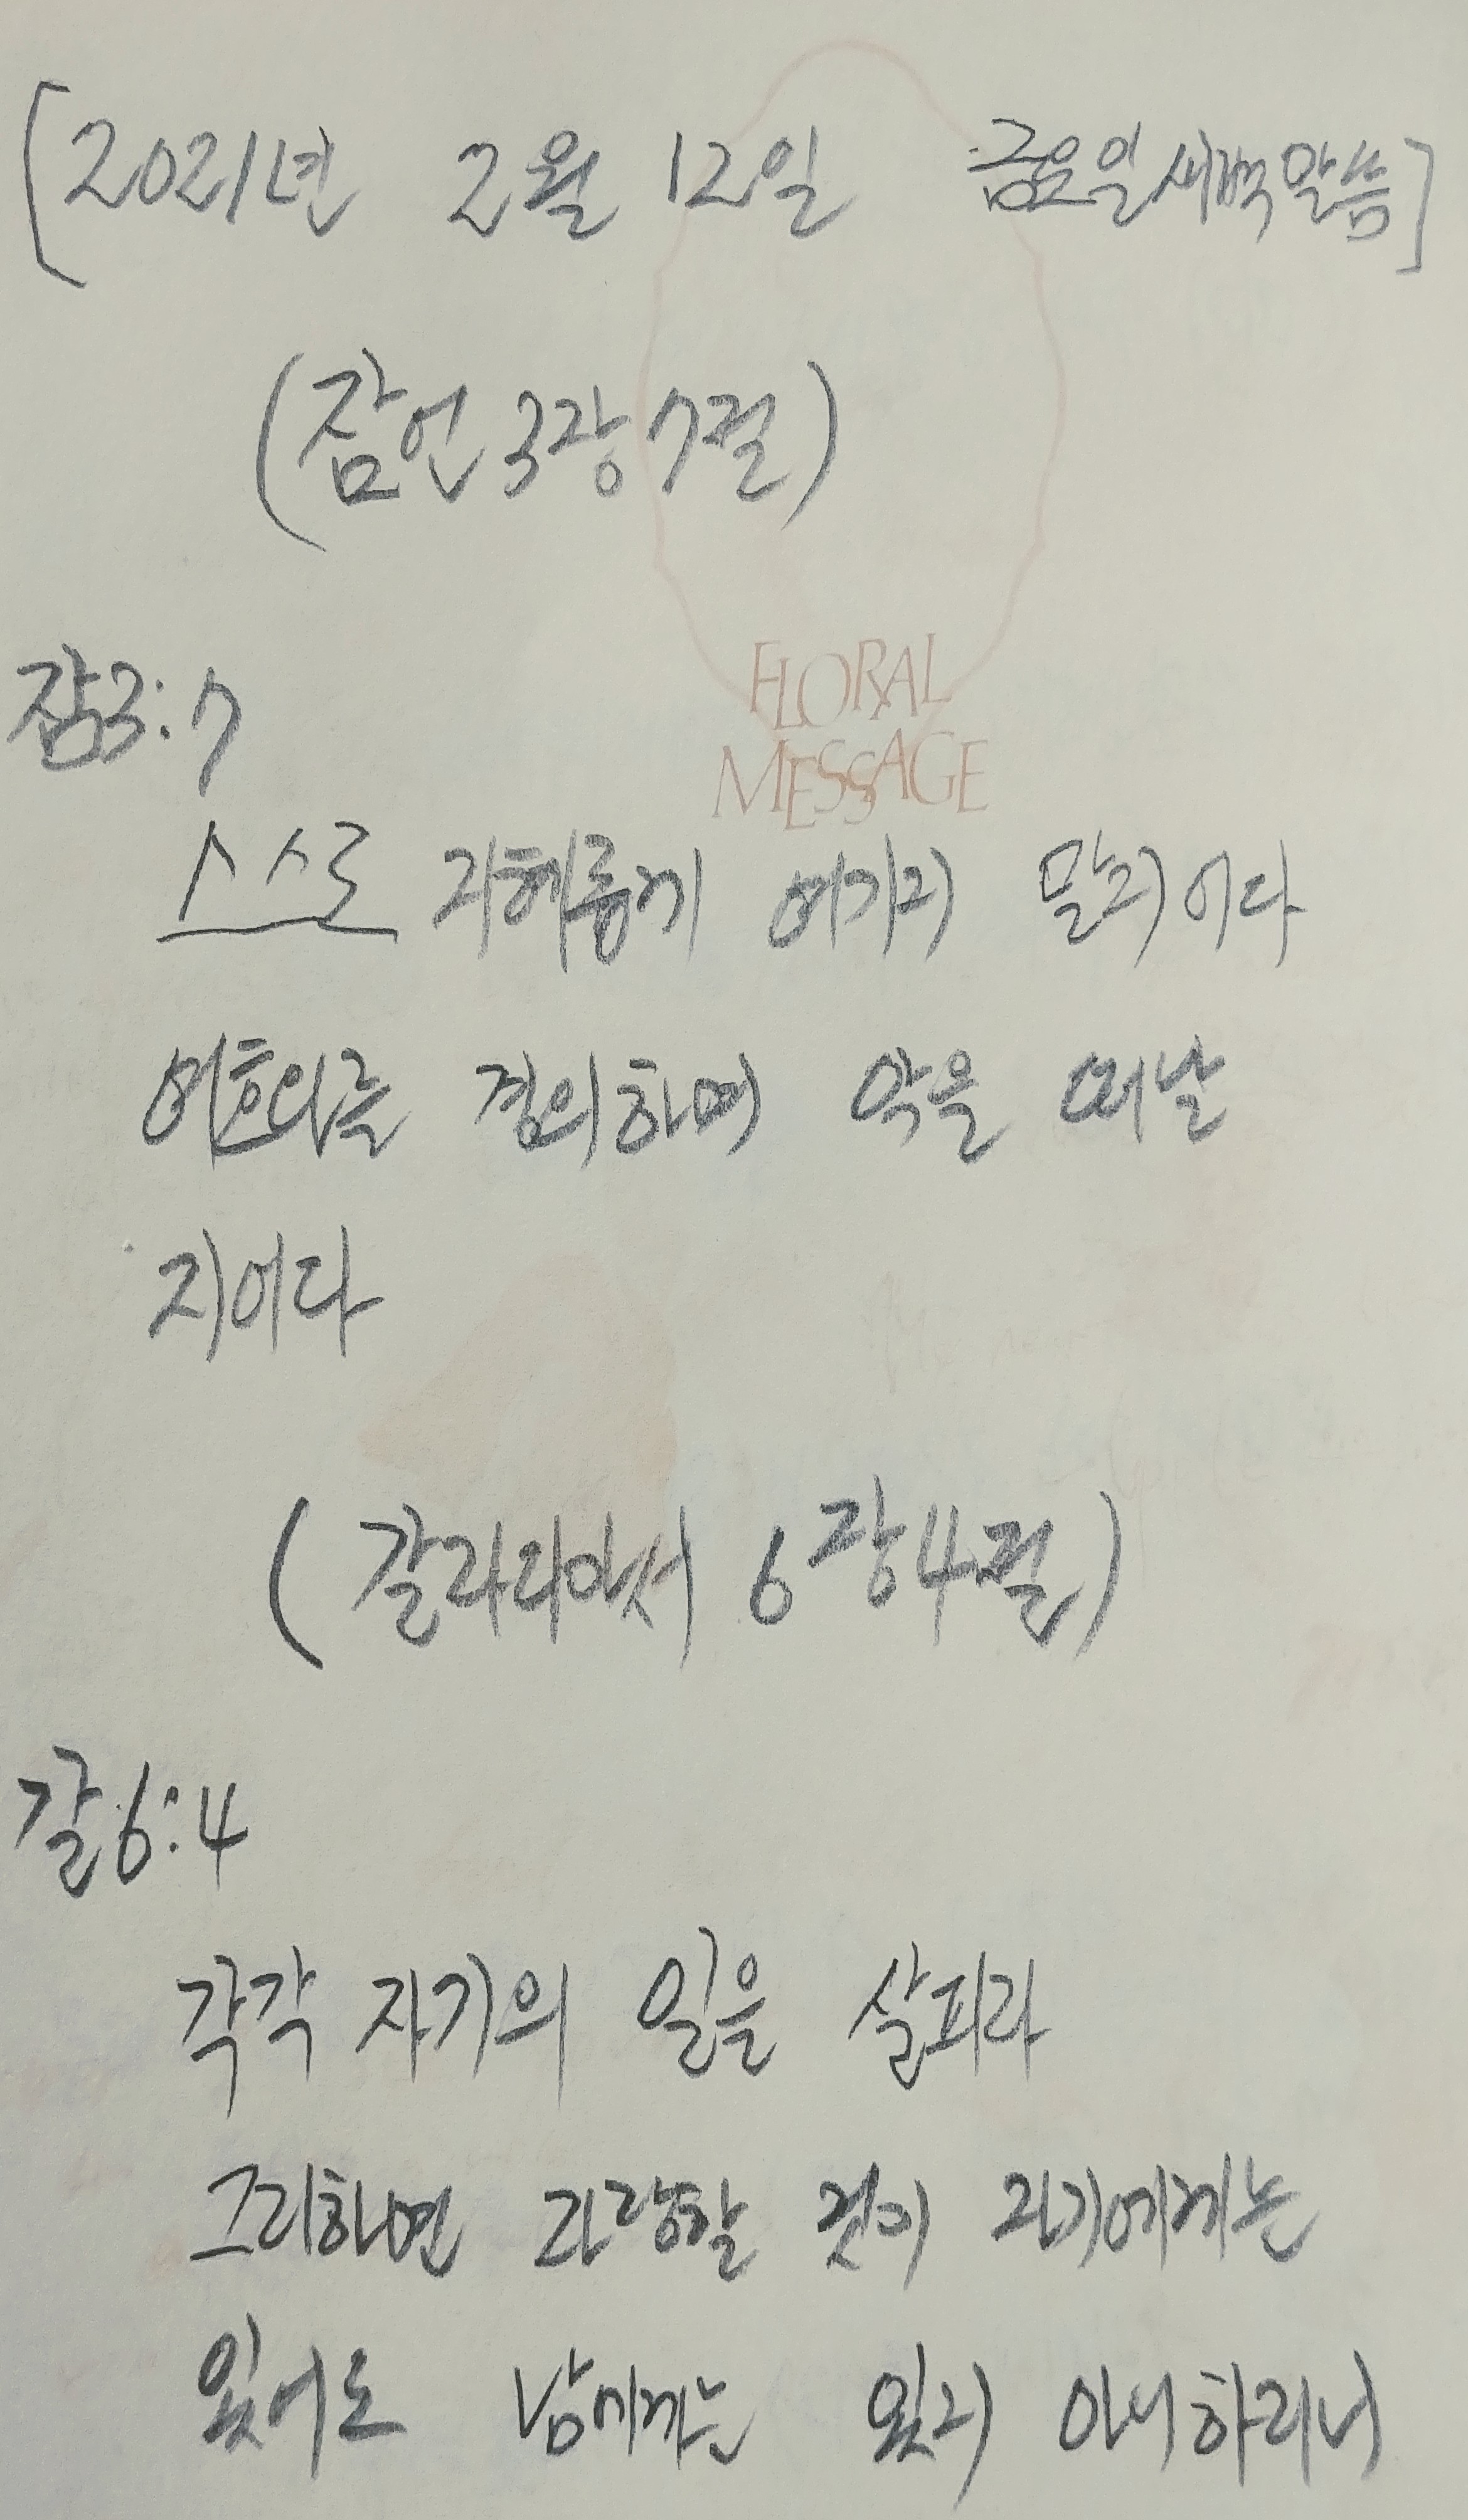 [2021년 2월 12일 금요일새벽말씀]
(잠언 3장 7절)
FLORAL
MESSAGE
잠3:7
스스로 지혜롭게 여기지 말지어다
여호와를 경외하며 악을 떠날
지어다
(갈라디아서 6장4절)
갈6:4
각각 자기의 일을 살피라
그리하면 자랑할 것이 자기에게는
있어도 남에게는 있지 아니하리니